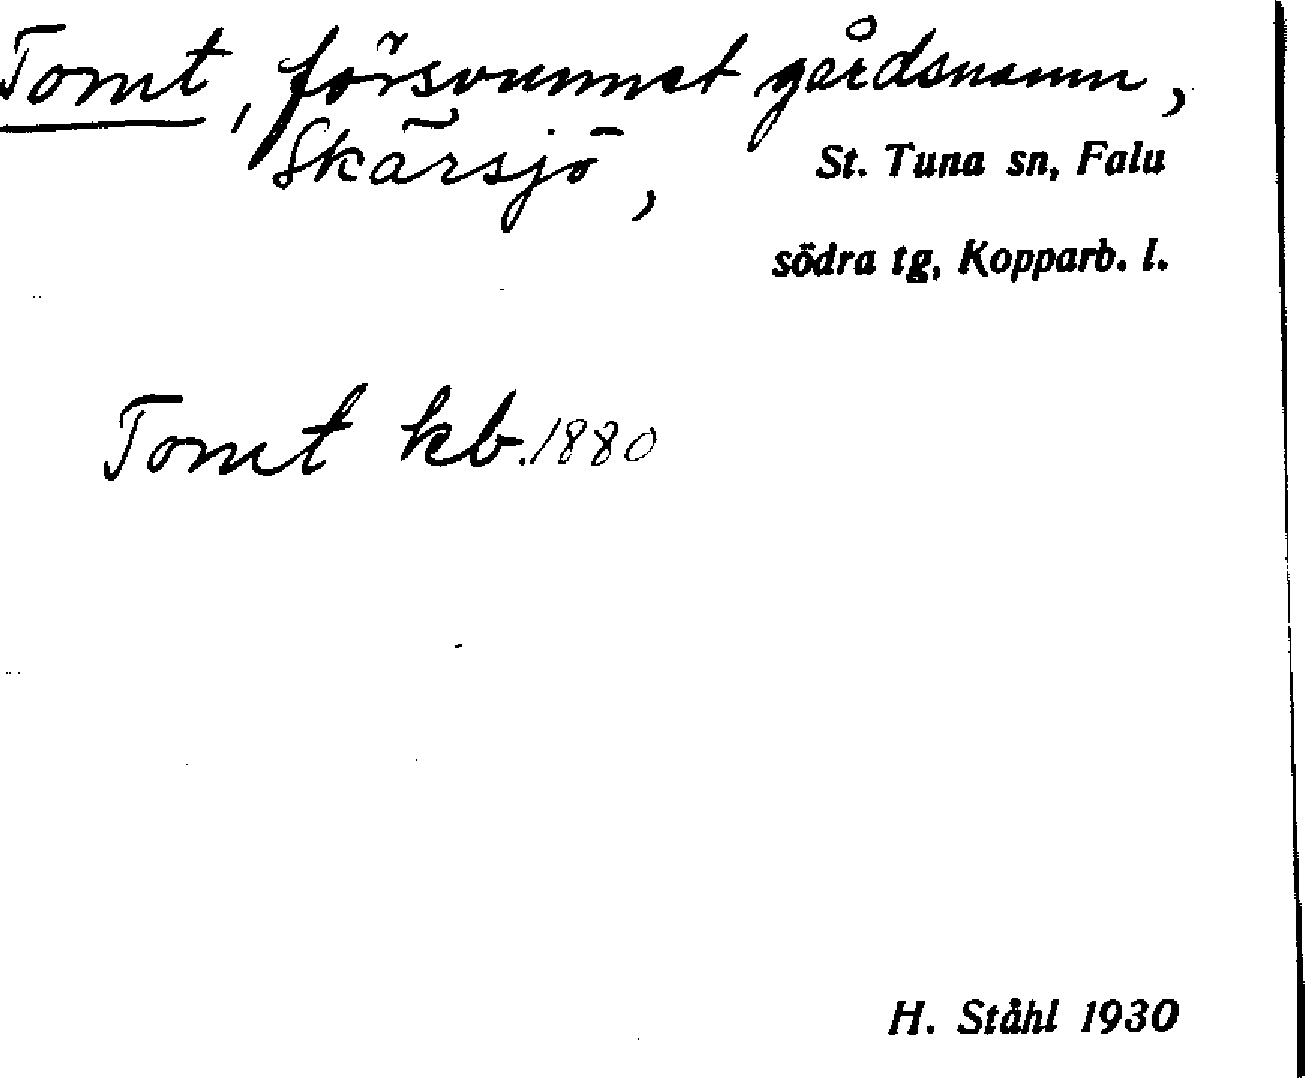 Tomt, försvunnet gårdsnamn,
Skärsjö, St. Tuna sn, Falu
södra tg, Kopparb. l.
Tomt kb. 1880
H. Ståhl 1930